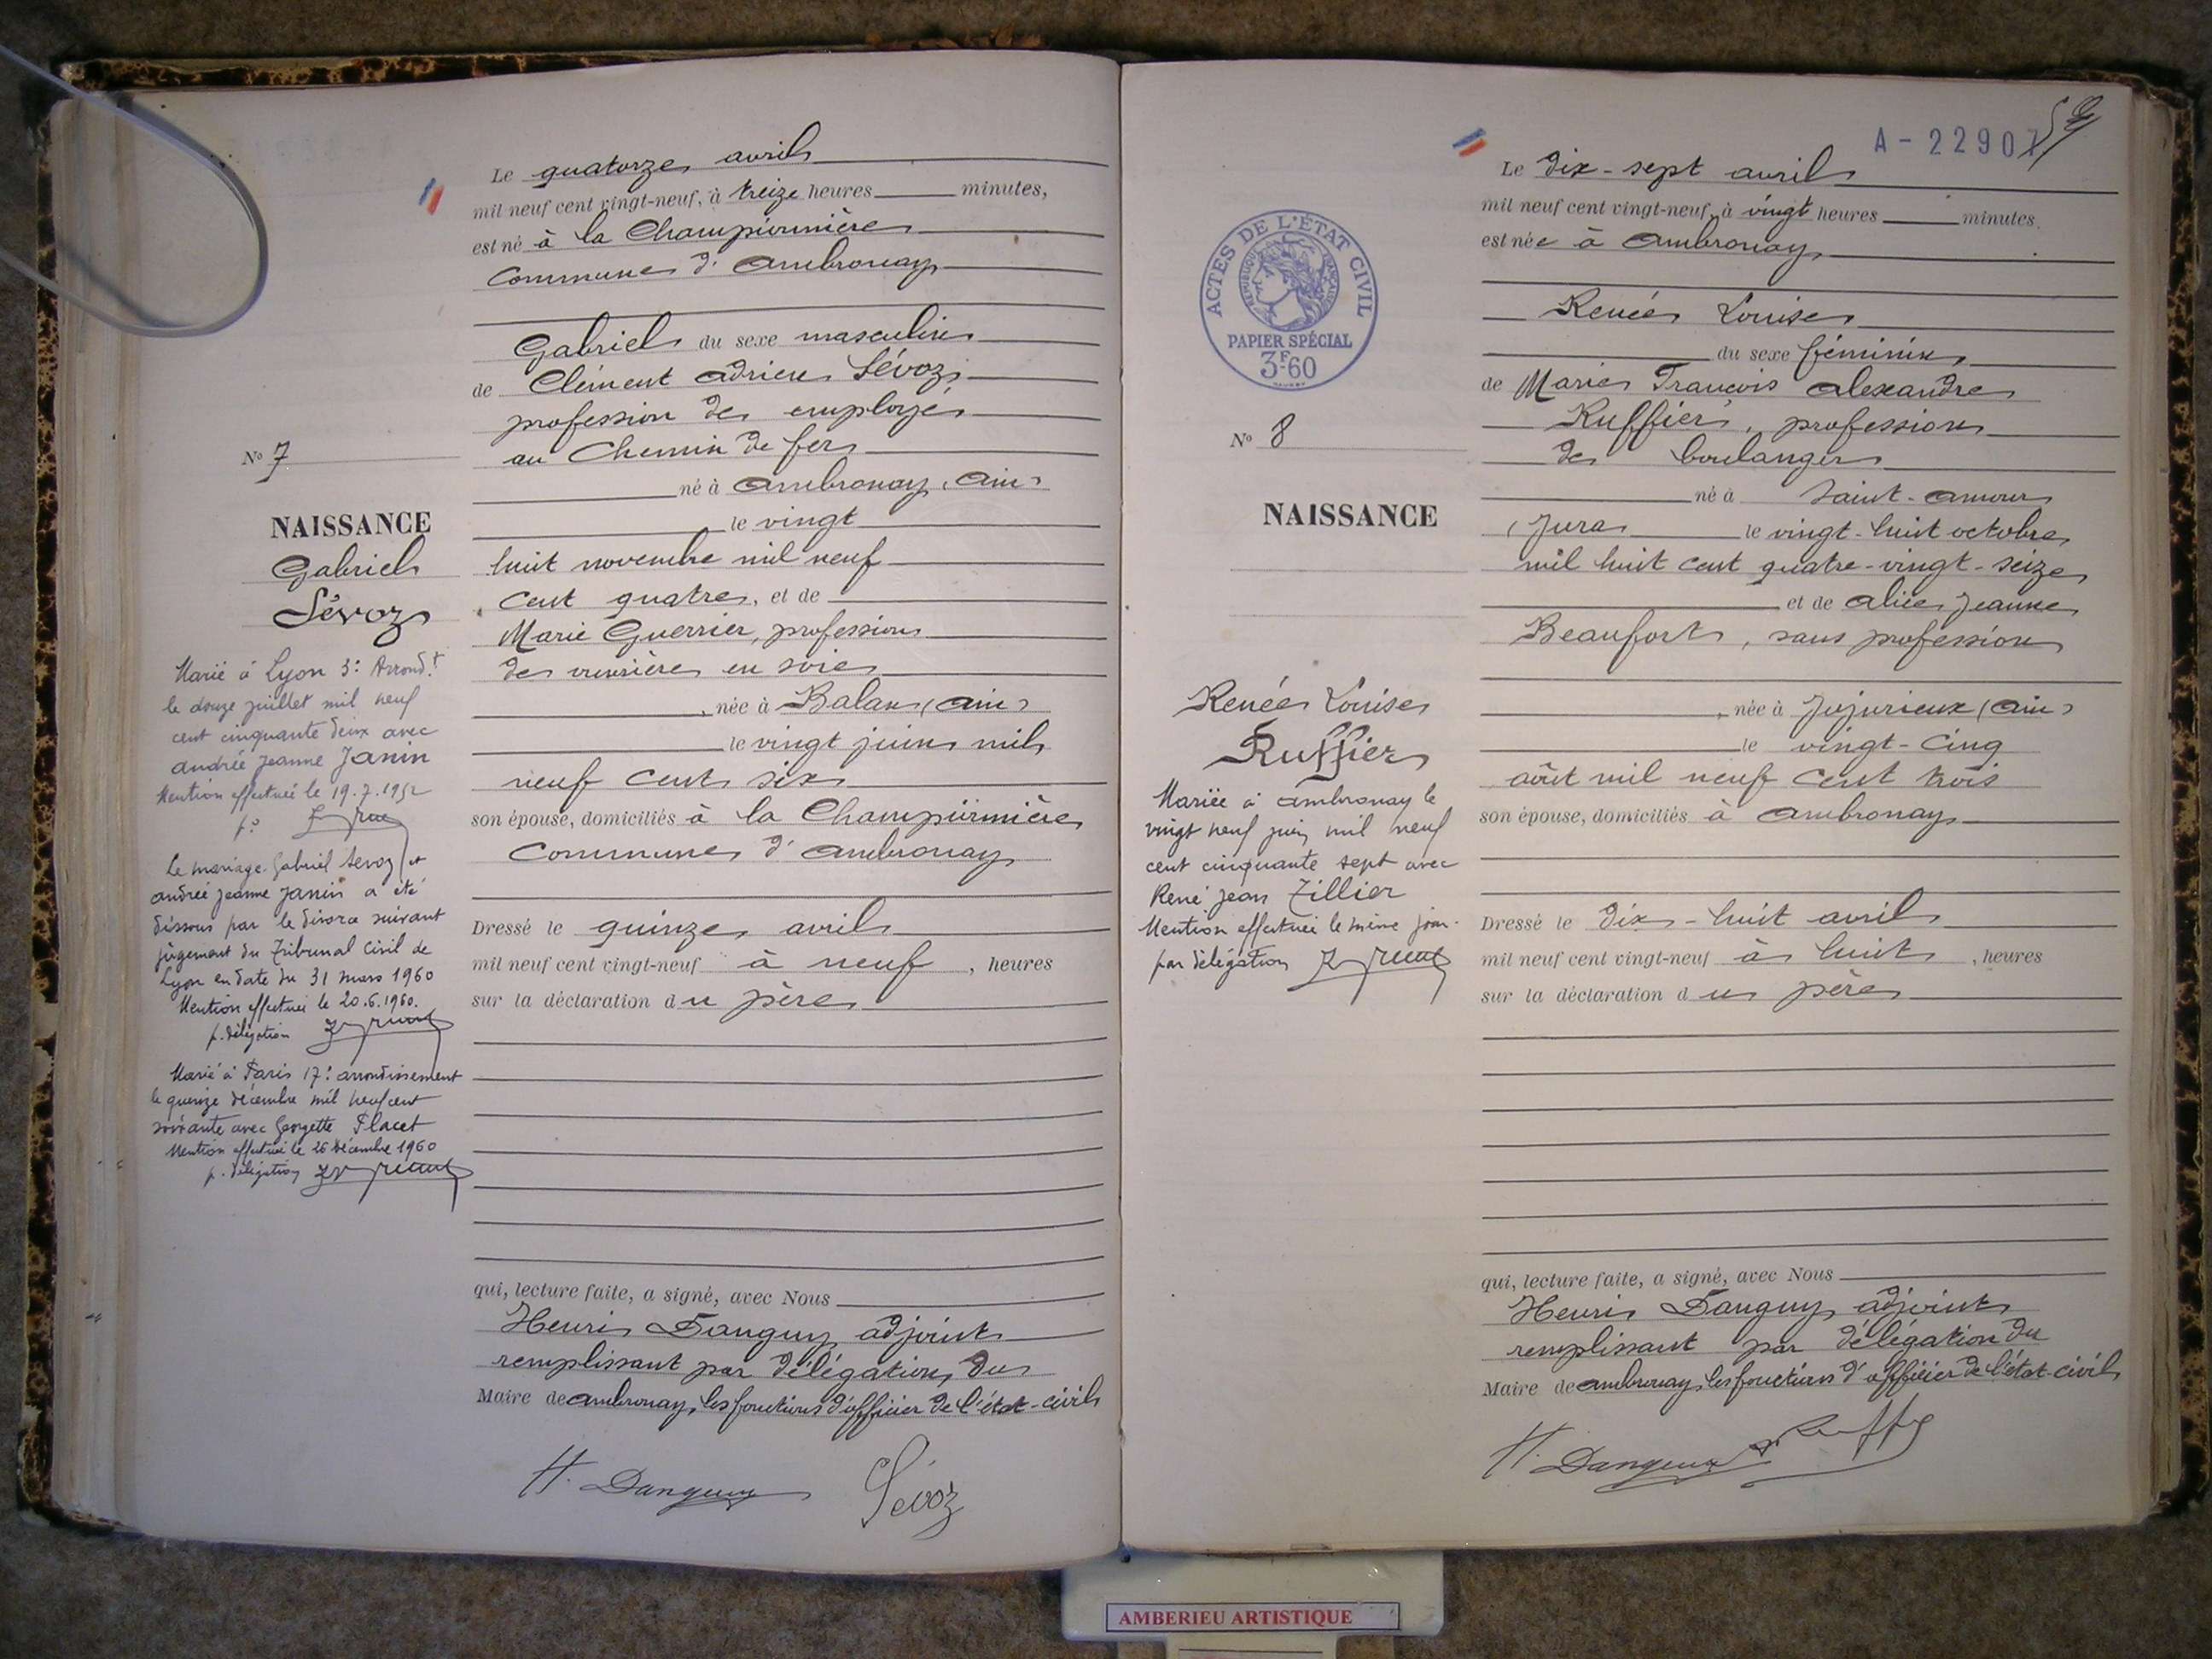 Le quatorze avril
mil neuf cent vingt-neuf, à treize heures minutes,
est né à la Championnière
Commune d'Ambronay
Gabriel du sexe masculin
de Clément Adrien Sévoz
profession de employé
au Chemin de fer
né à Ambronay, Ain
le vingt
huit novembre mil neuf
cent quatre, et de
Marie Guerrier, profession
de ouvrière en soie
, née à Balan (Ain)
le vingt juin mil
neuf cent six
son épouse, domiciliés à la Championnière
Commune d'Ambronay
Dressé le quinze avril
mil neuf cent vingt-neuf à neuf, heures
sur la déclaration du père
qui, lecture faite, a signé, avec Nous
Henri Danguy adjoint
remplissant par délégation du
Maire de Ambronay, les fonctions d'officier de l'état-civil
H. Danguy Sévoz
No 7
NAISSANCE
Gabriel
Sévoz
Marié à Lyon 3e Arrondt
le douze juillet mil neuf
cent cinquante deux avec
andrée jeanne Janin
Mention effectuée le 19.7.1952
po
Le mariage Gabriel Sevoz et
andrée jeanne Janin a été
dissous par le divorce suivant
jugement du Tribunal Civil de
Lyon en date du 31 mars 1960
Mention effectuée le 20.6.1960.
p. délégation
Marié à Paris 17e arrondissement
le quinze décembre mil neuf cent
soixante avec Georgette Placet
Mention effectuée le 26 Décembre 1960
p. délégation
A - 22907
59
Le dix-sept avril
mil neuf cent vingt-neuf, à vingt heures minutes.
est née à Ambronay
Renée Louise
du sexe féminin
de Marie François Alexandre
Ruffier, profession
de boulanger
né à Saint-Amour
(Jura le vingt-huit octobre
mil huit cent quatre-vingt-seize
et de Alice Jeanne
Beaufort, sans profession
, née à Jujurieux (Ain)
le vingt-cinq
août mil neuf cent trois
son épouse, domiciliés à Ambronay
Dressé le dix-huit avril
mil neuf cent vingt-neuf à huit, heures
sur la déclaration du père
qui, lecture faite, a signé, avec Nous
Henri Danguy adjoint
remplissant par délégation du
Maire de Ambronay, les fonctions d'officier de l'état-civil
H. Danguy
ACTES DE L'ÉTAT CIVIL
RÉPUBLIQUE FRANÇAISE
PAPIER SPÉCIAL
3F60
No 8
NAISSANCE
Renée Louise
Ruffier
Mariée à Ambronay le
vingt neuf juin mil neuf
cent cinquante sept avec
René Jean Tillier
Mention effectuée le même jour.
par délégation
AMBERIEU ARTISTIQUE